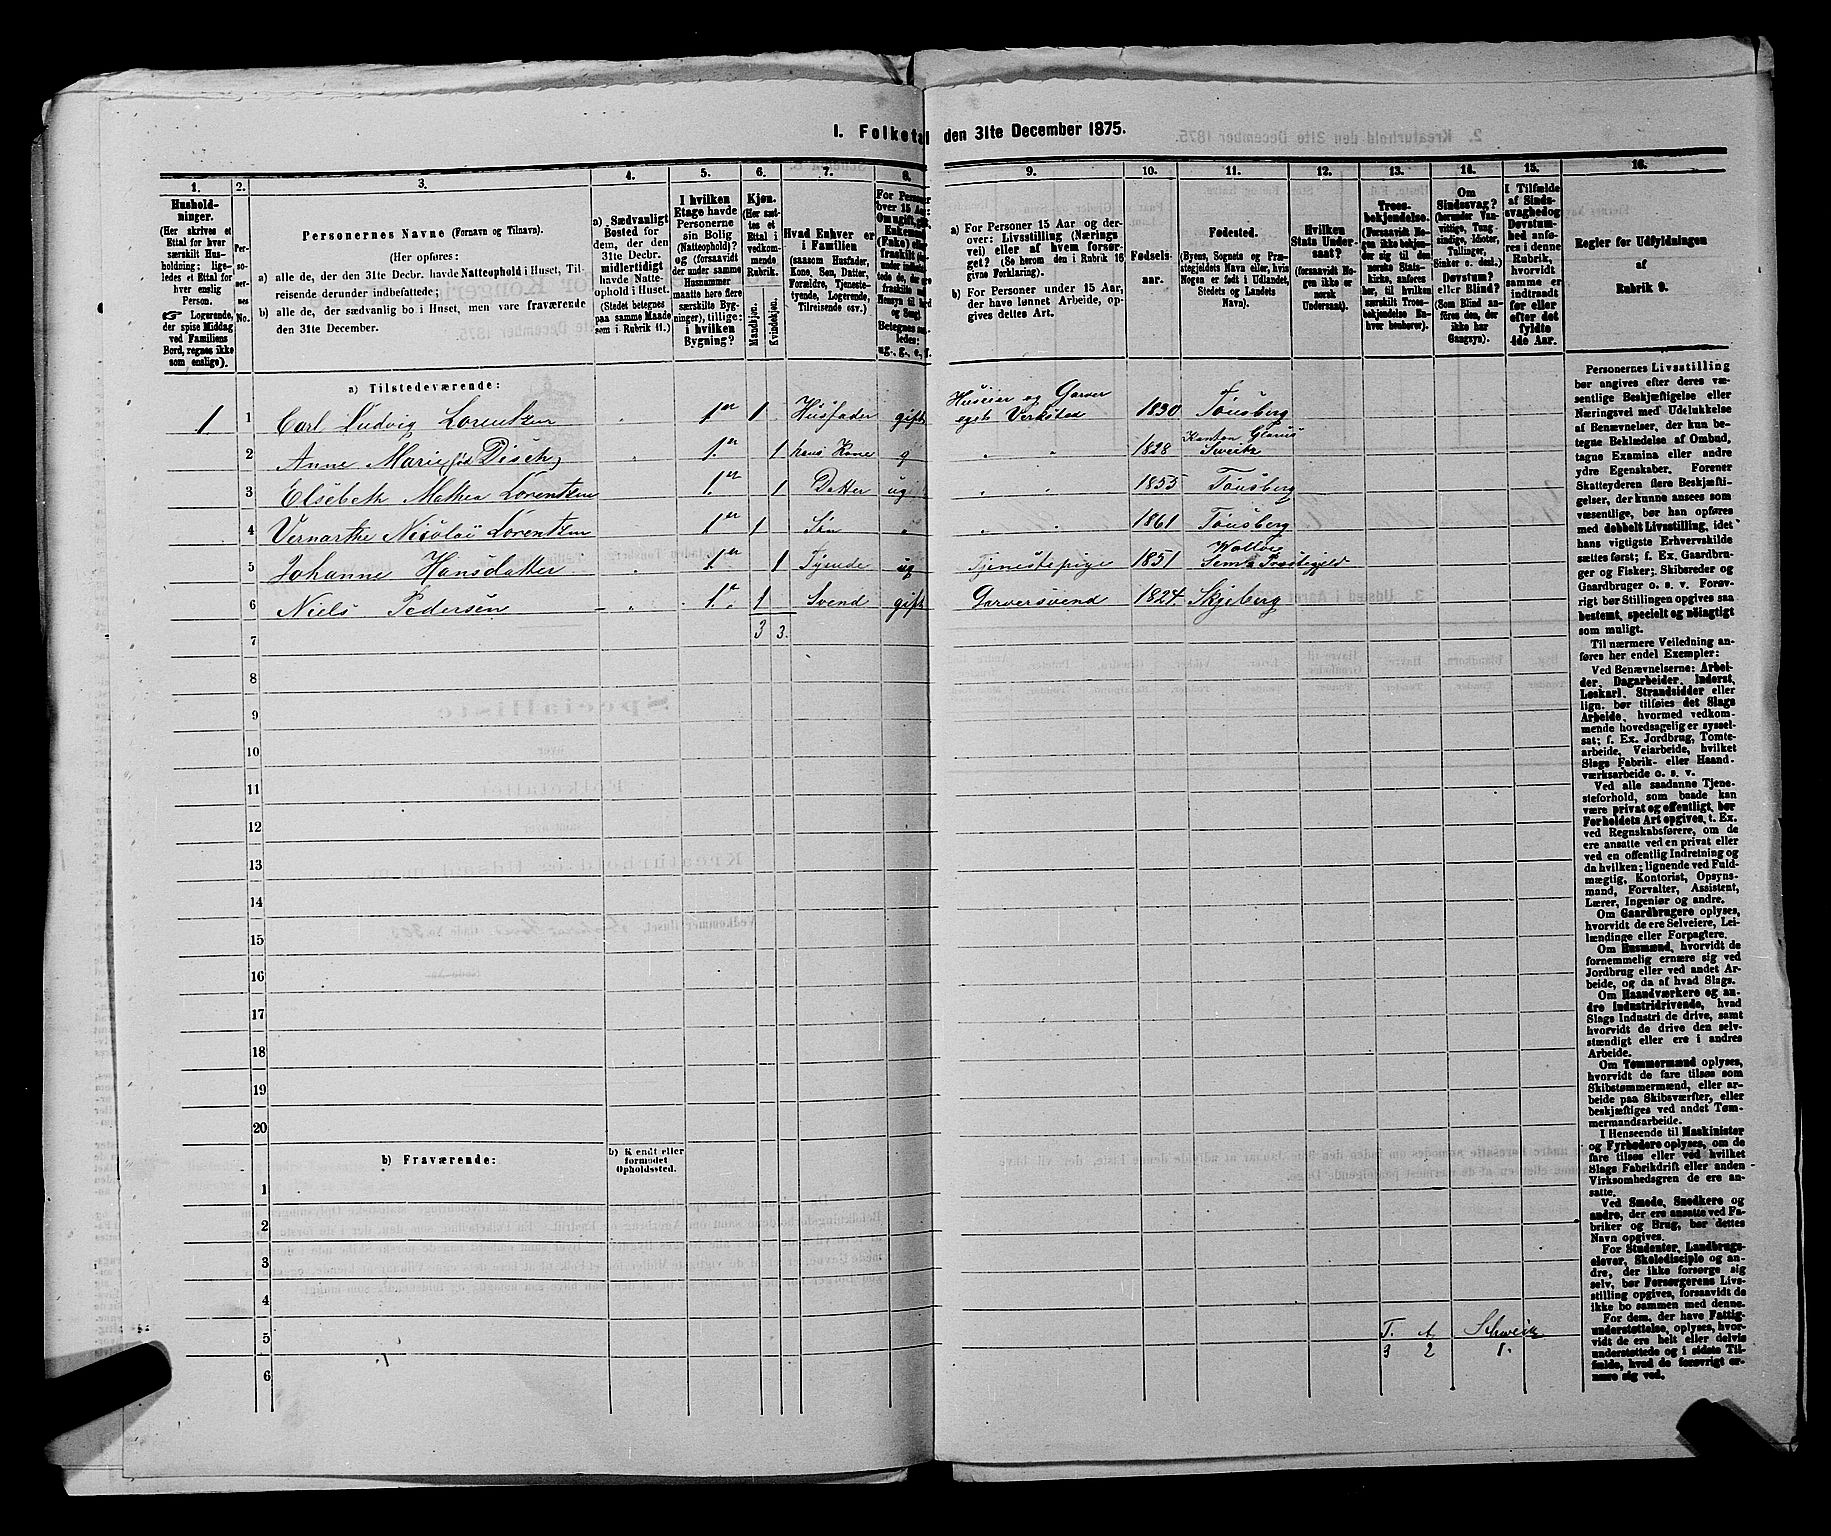 I. Folketal den 31te December 1875.
1. 2. 3. 4. 5. 6. 7. 8. 9. 10. 11. 12. 13. 14. 15. 16.
Husholdninger.
(Her skrives et
Ettal for hver
særskilt Husholdning;
ligeledes
et Ettal for
hver enslig
Person.
Logerende,
der spise Middag
ved Familiens
Bord, regnes ikke
som enslige).
Personernes
No.
Personernes Navne (Fornavn og Tilnavn).
(Her opføres:
a) alle de, der den 31te Decbr. havde Natteophold i Huset, Tilreisende
derunder indbefattede;
b) alle de, der sædvanlig bo i Huset, men vare fraværende
den 31te December.
a) Sædvanligt
Bosted for
dem, der den
31te Decbr.
midlertidigt
havde Natteophold
i Huset.
(Stedet betegnes
paa samme Maade
som i Rubrik 11.)
I hvilken
Etage havde
Personerne
sin Bolig
(Natteophold)?
og (forsaavidt
der under samme
Husnummer
maatte høre flere
særskilte Bygninger),
tillige:
i hvilken
Bygning?
Kjøn.
(Her sættes
et
Ettal i
vedkommende
Rubrik.
Mandkjøn.
Kvindekjøn.
Hvad Enhver er
i Familien
(saasom Husfader,
Kone, Søn, Datter,
Forældre, Tjenestetyende,
Logerende,
Tilreisende osv.)
For Personer
over 15 Aar:
Om ugift, gift,
Enkemand
(Enke) eller
fraskilt
Betegnes saaledes:
ug., g., e., f.
a) For Personer 15 Aar og derover:
Livsstilling (Næringsvei)
eller af hvem forsørget?
(Se herom den i Rubrik 16
givne Forklaring).
b) For Personer under 15 Aar,
der have lønnet Arbeide, opgives
dettes Art.
Fødselsaar.
Fødested.
(Byens, Sognets og Præstegjeldets
Navn eller, hvis
Nogen er født i Udlandet,
Stedets og Landets
Navn).
Hvilken
Stats Undersaat?
(forsaavidt Nogen
ikke er
norsk
Undersaat).
Troesbekjendelse.
(Forsaavidt Nogen
ikke bekjender
sig til den
norske Statskirke,
anføres
her, til hvilken
særskilt Troesbekjendelse
Enhver
henhører).
Om
Sindssvag?
(herunder Vanvittige,
Tungsindige,
Idioter,
Tullinger,
Sinker o. desl.)
Døvstum?
eller Blind?
(Som Blind anføres
den, der
ikke har
Gangsyn).
I Tilfælde
af Sindssvaghed
og
Døvstumhed
anføres
i denne
Rubrik,
hvorvidt
samme er
indtraadt
før eller
efter det
fyldte
4de Aar.
Regler for Udfyldningen
af
Rubrik 9.
a) Tilstedeværende:
1 1 Carl Ludvig Lorentzen 1. 1 Husfader gift Huseier og Garver
eget Verksted 1830 Tønsberg
2 Anne Marie (fød Disch) 1. 1 hans Kone g 1828 Kanton Glarus
Sweitz
3 Elsebeth Mathea Lorentzen 1. 1 Datter ug 1855 Tønsberg
4 Vernarthe Nicolai Lorentzen 1 1 Søn 1861 Tønsberg
5 Johanne Hansdatter 1. 1 Tyende ug Tjenestepige 1851
Sem
6 Niels Pedersen 1. 1 Svend gift Garversvend 1824 Skjeberg
3 3.
7
8
9
10
11
12
13
14
15
16
17
18
19
20
b) Fraværende:
b) Kjendt eller
formodet
Opholdssted.
1
2
3
4
5
6
T. A Schweiz
3 2 1.
Personernes Livsstilling
bør angives efter deres væsentlige
Beskjæftigelse eller
Næringsvei med Udelukkelse
af Benævnelser, der kun betegne
Beklædelse af Ombud,
tagne Examina eller andre
ydre Egenskaber. Forener
Skatteyderen flere Beskjæftigelser,
der kunne ansees som
væsentlige, bør han opføres
med dobbelt Livsstilling, idet
hans vigtigste Erhvervskilde
sættes først; f. Ex. Gaardbruger
og Fisker; Skibsreder og
Gaardbruger o. s. v. Forøvrigt
bør Stillingen opgives saa
bestemt, specielt og nøiagtigt
som muligt.
Til nærmere Veiledning anføres
her endel Exempler:
Ved Benævnelserne: Arbeider,
Dagarbeider, Inderst,
Løskarl, Strandsidder eller
lign. bør tilføies det Slags
Arbeide, hvormed vedkommende
hovedsagelig er sysselsat;
f. Ex. Jordbrug, Tomtearbeide,
Veiarbeide, hvilket
Slags Fabrik- eller Haandværksarbeide
o. s. v.
Ved alle saadanne Tjenesteforhold,
som baade kan
være privat og offentligt, bør
Forholdets Art opgives, t. Ex.
ved Regnskabsførere, om de
ere ansatte ved en privat eller
ved en offentlig Indretning og
da hvilken; lignende ved Fuldmægtig,
Kontorist, Opsynsmand,
Forvalter, Assistent,
Lærer, Ingeniør og andre.
Om Gaardbrugere oplyses,
hvorvidt de ere Selveiere, Leilændinge
eller Forpagtere.
Om Husmænd, hvorvidt de
fornemmelig ernære sig ved
Jordbrug eller ved andet Arbeide,
og da af hvad Slags.
Om Haandværkere og andre
Industridrivende, hvad
Slags Industri de drive, samt
hvorvidt de drive den selvstændigt
eller ere i andres
Arbeide.
Om Tømmermænd oplyses,
hvorvidt de fare tilsøs som
Skibstømmermænd, eller arbeide
paa Skibsværfter, eller
beskjæftiges ved andet Tømmermandsarbeide.
I Henseende til Maskinister
og Fyrbødere oplyses, om de
fare tilsøs eller ved hvilket
Slags Fabrikdrift eller anden
Virksomhedsgren de ere ansatte.
Ved Smede, Snedkere og
andre, der ere ansatte ved Fabriker
og Brug, bør dettes
Navn opgives.
For Studenter, Landbrugselever,
Skoledisciple og andre,
der ikke forsørge sig
selv, bør Forsørgerens Livsstilling
opgives, forsaavidt de
ikke bo sammen med denne.
For dem, der have Fattigunderstøttelse,
oplyses, hvorvidt
de ere helt eller delvis
understøttede og i sidste Tilfælde,
hvad de forøvrigt ernære
sig ved.